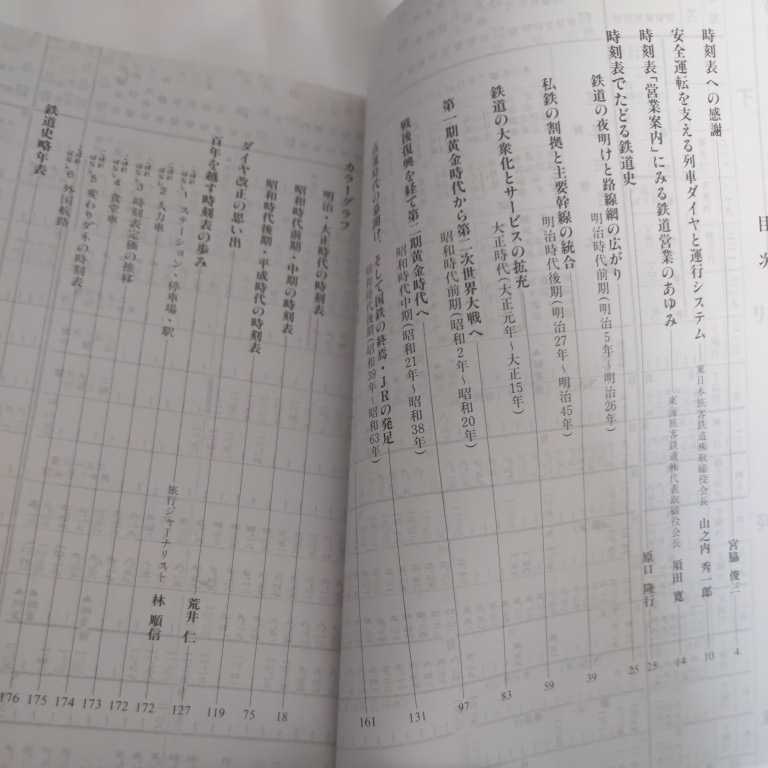 目次
時刻表への感謝 宮脇 俊三 4
安全運転を支える列車ダイヤと運行システム 東日本旅客鉄道㈱取締役会長 山之内 秀一郎 10
時刻表「営業案内」にみる鉄道営業のあゆみ 東海旅客鉄道㈱代表取締役会長 須田 寛 14
時刻表でたどる鉄道史 原口 隆行 25
鉄道の夜明けと路線網の広がり 明治時代前期(明治5年〜明治26年) 25
私鉄の割拠と主要幹線の統合 明治時代後期(明治27年〜明治45年) 39
鉄道の大衆化とサービスの拡充 大正時代(大正元年〜大正15年) 59
第一期黄金時代から第二次世界大戦へ 昭和時代前期(昭和2年〜昭和20年) 83
戦後復興を経て第二期黄金時代へ 昭和時代中期(昭和21年〜昭和38年) 97
高速時代の幕開け、そして国鉄の終焉・JRの発足 昭和時代後期(昭和39年〜昭和63年) 131
161
カラーグラフ
明治・大正時代の時刻表 18
昭和時代前期・中期の時刻表 75
昭和時代後期・平成時代の時刻表 119
ダイヤ改正の思い出 荒井 仁 127
百年を越す時刻表の歩み 旅行ジャーナリスト 林 順信
1 ステーション・停車場・駅 172
2 人力車 172
3 時刻表定価の推移 173
4 食堂車 174
5 変わりダネの時刻表 175
6 外国航路 176
鉄道史略年表